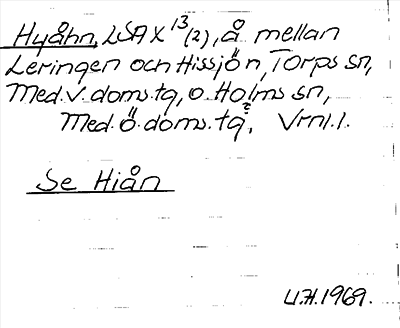 Hyåhn, LSA X 13 (2), å mellan
Leringen och Hissjön, Torps sn,
Med. v. doms. tg, o. Holms sn,
Med. ö. doms. tg., Vrnl. l.
Se Hiån
U.H. 1969.